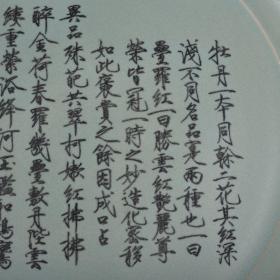 牡丹一本同幹二花其紅深
淺不同名品寔兩種也一曰
疊羅紅一曰勝雲紅艷麗尊
榮皆冠一時之妙造化密移
如此褒賞之餘因成口占
異品殊葩共翠柯嫩紅拂拂
醉金荷春羅幾疊敷丹陛雲
縷重縈浴絳河玉鑑和鳴鸞